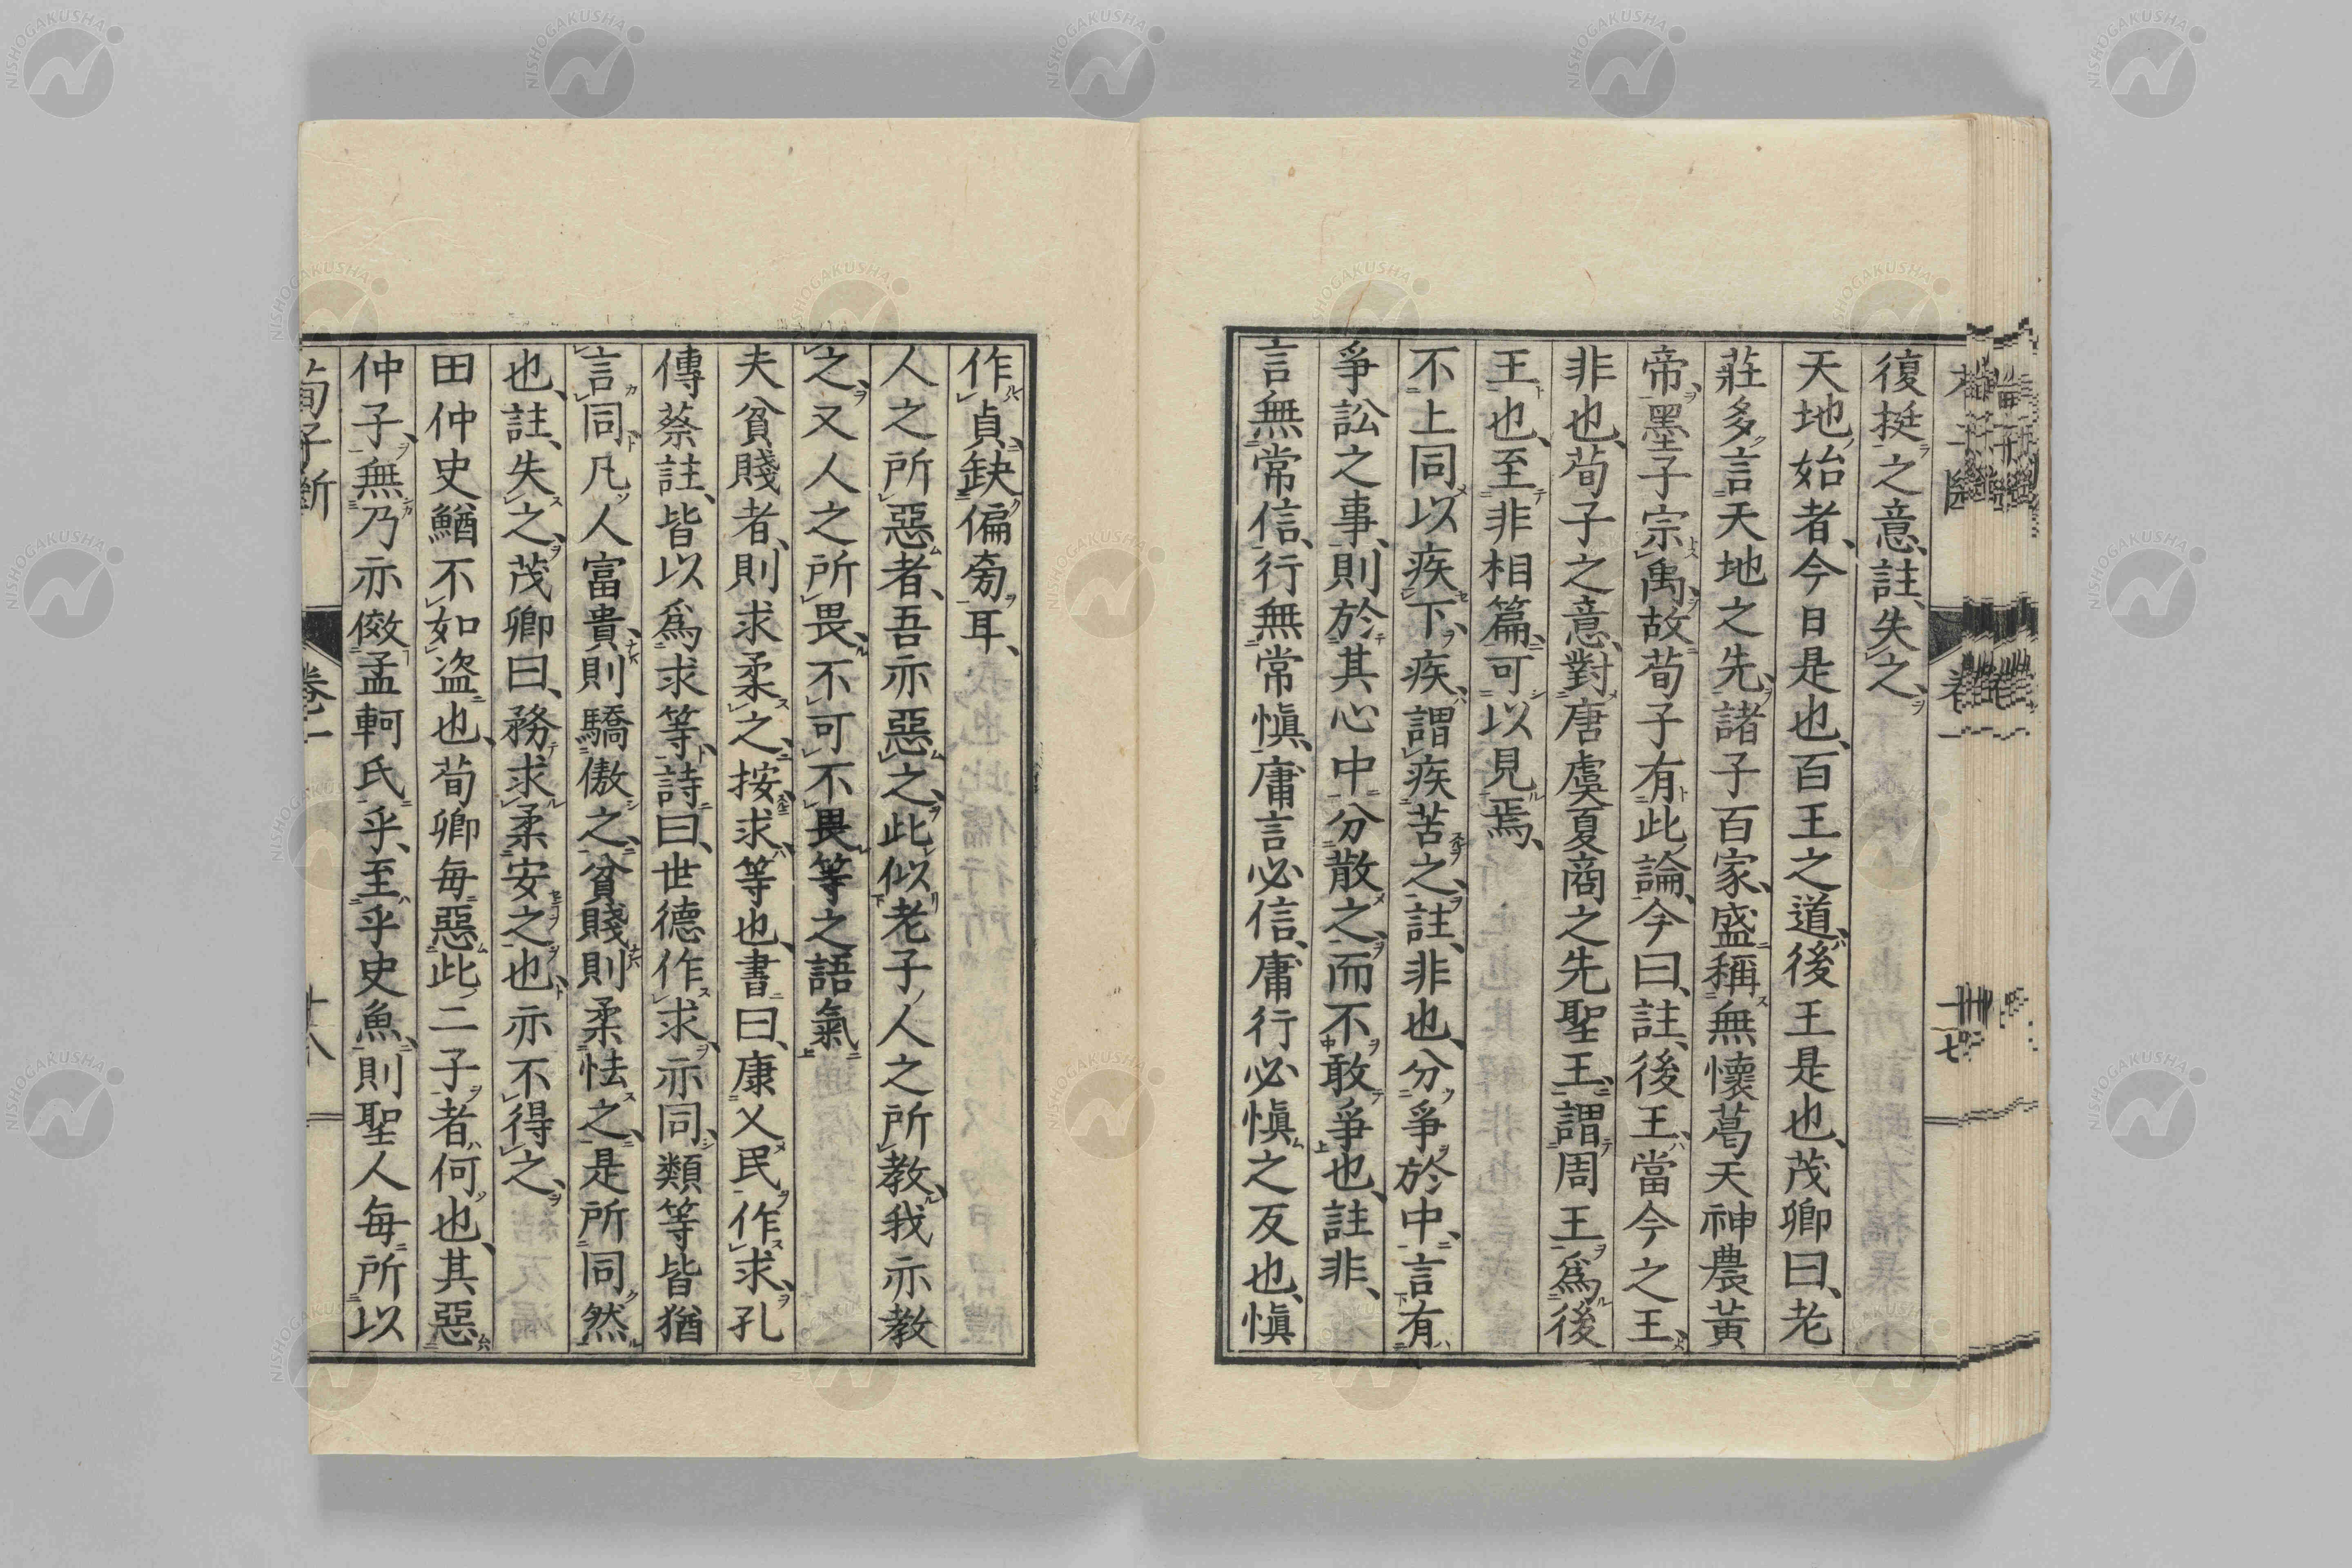 復挺之意、註、失之、
天地始者、今日是也、百王之道、後王是也、茂卿曰、老
莊多言天地之先、諸子百家、盛稱無懷葛天神農黃
帝、墨子宗禹、故荀子有此論、今曰、註、後王、當今之王、
非也、荀子之意、對唐虞夏商之先聖王、謂周王爲後
王也、至非相篇、可以見焉、
不上同以疾下、疾、謂疾苦之、註、非也、分爭於中、言有
爭訟之事、則於其心中分散之、而不敢爭也、註非、
言無常信、行無常愼、庸言必信、庸行必愼之反也、愼
作貞、缺偏旁耳、
人之所惡者、吾亦惡之、此似老子人之所教、我亦教
之、又人之所畏、不可不畏等之語氣
夫貧賤者、則求柔之、按求等也、書曰、康乂民作求、孔
傳蔡註、皆以爲求等、詩曰、世德作求、亦同、類等皆猶
言同、凡人富貴、則驕傲之、貧賤則柔怯之、是所同然
也、註、失之、茂卿曰、務求柔安之也、亦不得之、
田仲史鰌不如盜也、荀卿每惡此二子者何也、其惡
仲子、無乃亦傚孟軻氏乎、至乎史魚、則聖人每所以
荀子斷 卷一 十八
NISHOGAKUSHA